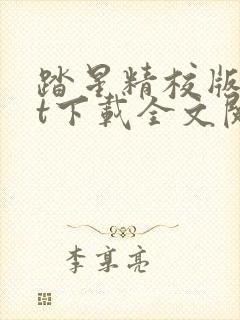 踏星精校版
t下载全文阅
李享亮